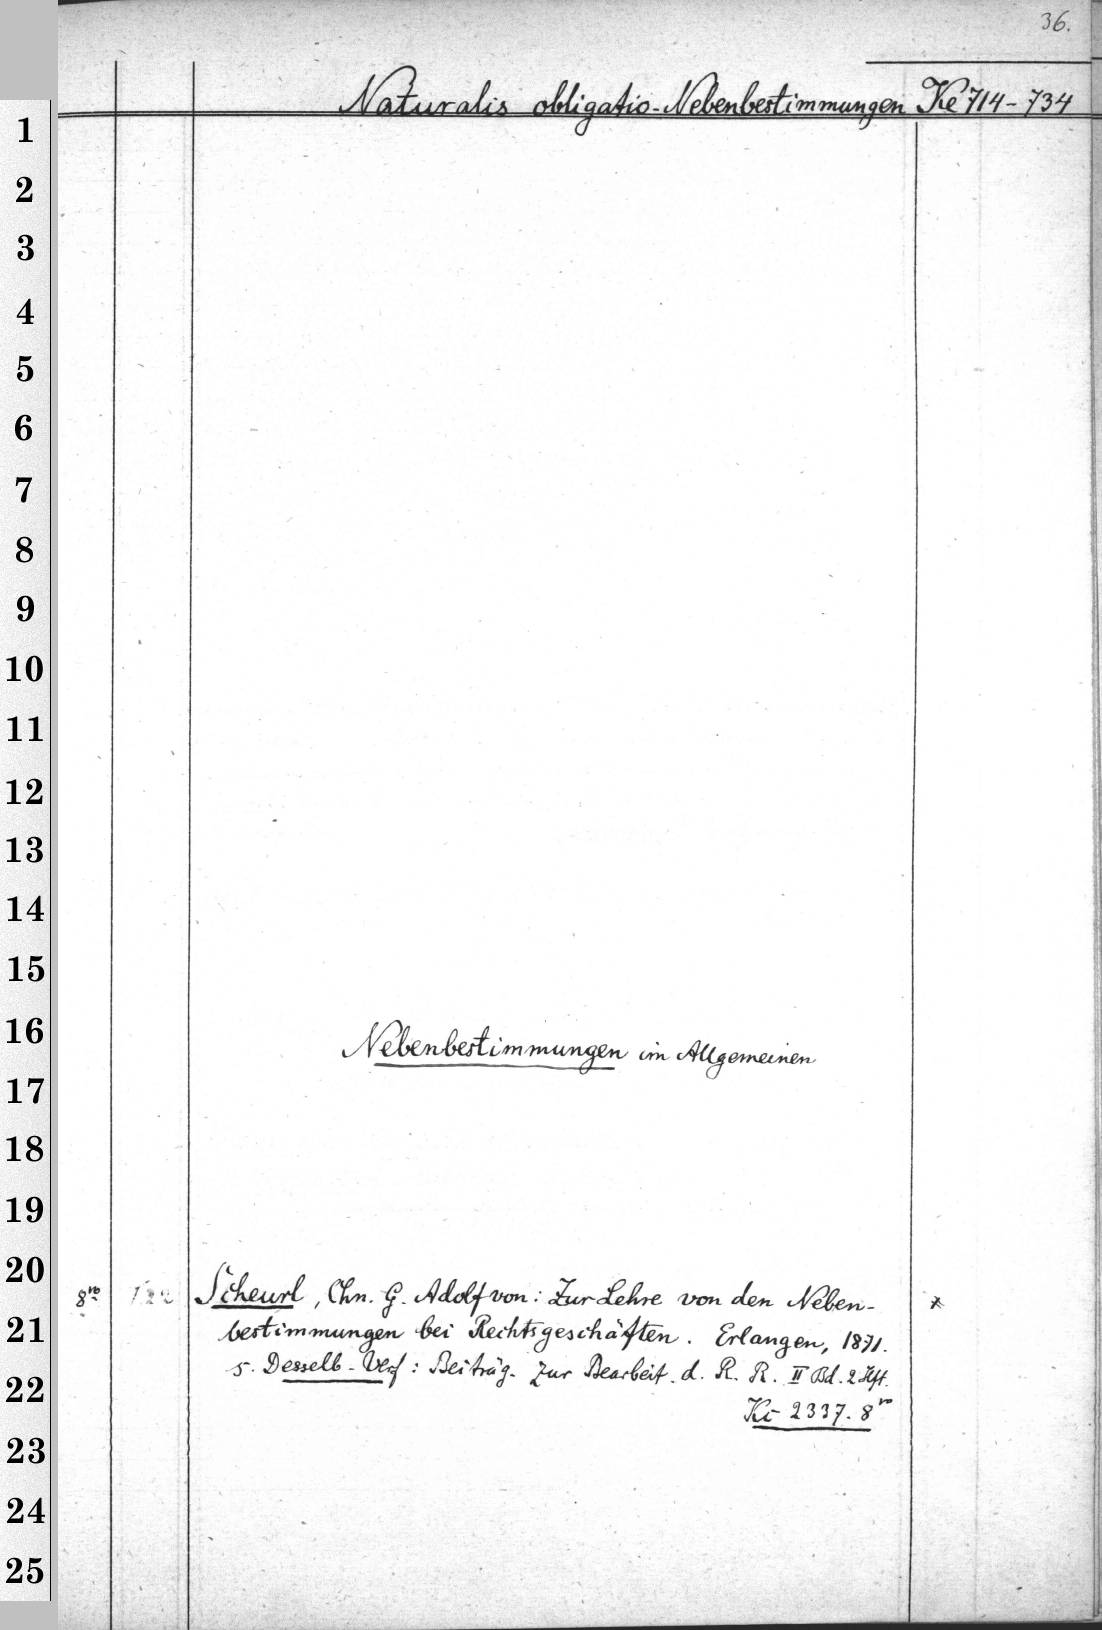 36.
Naturalis obligatio - Nebenbestimmungen Ke 714 - 734
1
2
3
4
5
6
7
8
9
10
11
12
13
14
15
16
Nebenbestimmungen im Allgemeinen
17
18
19
20
8vo Scheurl, Chn. G. Adolf von: Zur Lehre von den Neben- x
21
bestimmungen bei Rechtsgeschäften. Erlangen, 1871.
22
s. Desselb. Verf: Beiträg. zur Bearbeit. d. R. R. II Bd. 2 Hft.
Ki 2337. 8vo
23
24
25